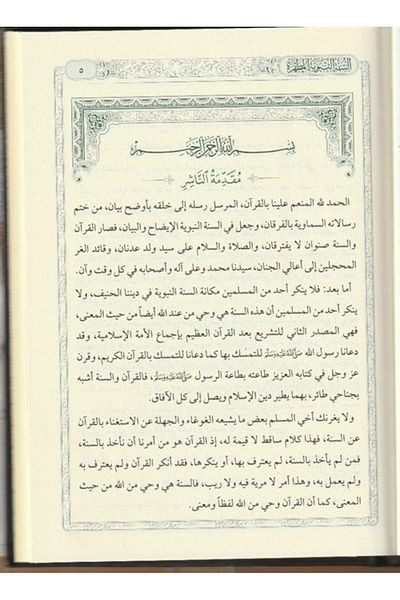 السنة النبوية المطهرة
٥
بسم الله الرحمن الرحيم
مقدمة الناشر
الحمد لله المنعم علينا بالقرآن، المرسل رسله إلى خلقه بأوضح بيان، من ختم
رسالاته السماوية بالفرقان، وجعل في السنة النبوية الإيضاح والبيان، فصار القرآن
والسنة صنوان لا يفترقان، والصلاة والسلام على سيد ولد عدنان، وقائد الغر
المحجلين إلى أعالي الجنان، سيدنا محمد وعلى آله وأصحابه في كل وقت وآن.
أما بعد: فلا ينكر أحد من المسلمين مكانة السنة النبوية في ديننا الحنيف، ولا
ينكر أحد من المسلمين أن هذه السنة هي وحي من عند الله أيضاً من حيث المعنى،
فهي المصدر الثاني للتشريع بعد القرآن العظيم بإجماع الأمة الإسلامية، وقد
دعانا رسول الله ﷺ للتمسك بها كما دعانا للتمسك بالقرآن الكريم، وقرن
عز وجل في كتابه العزيز طاعته بطاعة الرسول ﷺ، فالقرآن والسنة أشبه
بجناحي طائر، بهما يطير دين الإسلام ويصل إلى كل الآفاق.
ولا يغرنك أخي المسلم بعض ما يشيعه الغوغاء والجهلة عن الاستغناء بالقرآن
عن السنة، فهذا كلام ساقط لا قيمة له، إذ القرآن هو من أمرنا أن نأخذ بالسنة،
فمن لم يأخذ بالسنة، لم يعترف بها، أو ينكرها، فقد أنكر القرآن ولم يعترف به
ولم يعمل به، وهذا أمر لا مرية فيه ولا ريب، فالسنة هي وحي من الله من حيث
المعنى، كما أن القرآن وحي من الله لفظاً ومعنى.